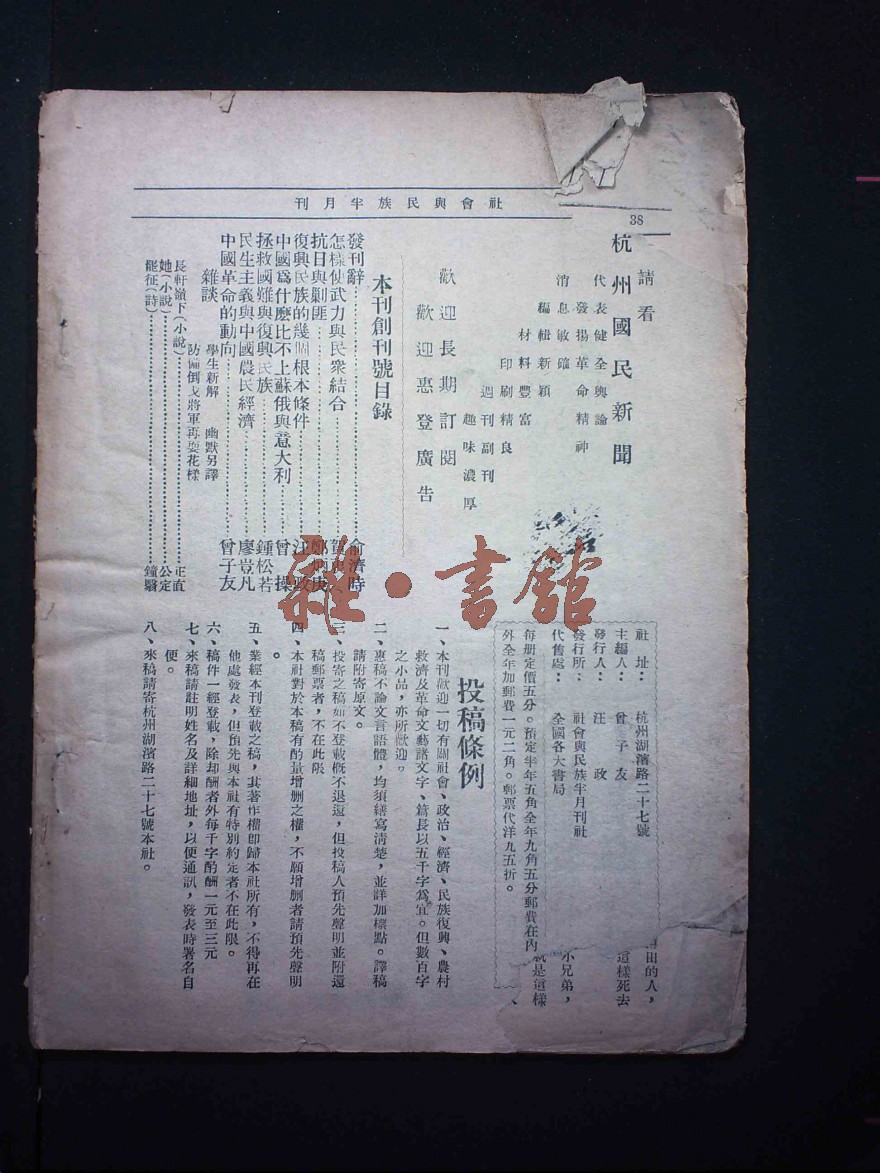 社會與民族半月刊
38
請看
杭州國民新聞
代表健全輿論
發揚革命精神
消息敏確
編輯新穎
材料豐富
印刷精良
週刊副刊
趣味濃厚
歡迎長期訂閱
歡迎惠登廣告
本刊創刊號目錄
發刊辭⋯⋯俞濟時
怎樣使武力與民衆結合⋯⋯
抗日與剿匪⋯⋯
復興民族的幾個根本條件⋯⋯汪政
中國爲什麼比不上蘇俄與意大利⋯⋯曾操
拯救國難與復興民族⋯⋯鍾松若
民生主義與中國農民經濟⋯⋯廖豈凡
中國革命的動向⋯⋯曾子友
雜談
學生新解 幽默另譯
防備倒戈將軍再耍花樣
長軒嶺下(小說)⋯⋯正直
她(小說)⋯⋯公定
罷征(詩)⋯⋯鐘翳
社址：杭州湖濱路二十七號
主編人：曾子友
發行人：汪政
發行所：社會與民族半月刊社
代售處：全國各大書局
每册定價五分。預定半年五角全年九角五分郵費在內
外全年加郵費一元二角。郵票代洋九五折。
田的人，
這樣死去
小兄弟，
就是這樣
投稿條例
一、本刊歡迎一切有關社會、政治、經濟、民族復興、農村
救濟及革命文藝諸文字、篇長以五千字爲宜。但數百字
之小品，亦所歡迎。
二、惠稿不論文言語體，均須繕寫清楚，並詳加標點。譯稿
請附寄原文。
三、投寄之稿如不登載概不退還，但投稿人預先聲明並附還
稿郵票者，不在此限
四、本社對於本稿有酌量增删之權，不願增删者請預先聲明
。
五、業經本刊登載之稿，其著作權即歸本社所有，不得再在
他處發表，但預先與本社有特別約定者不在此限。
六、稿件一經登載，除却酬者外每千字酌酬一元至三元
七、來稿請註明姓名及詳細地址，以便通訊，發表時署名自
便。
八、來稿請寄杭州湖濱路二十七號本社。
雜·書館